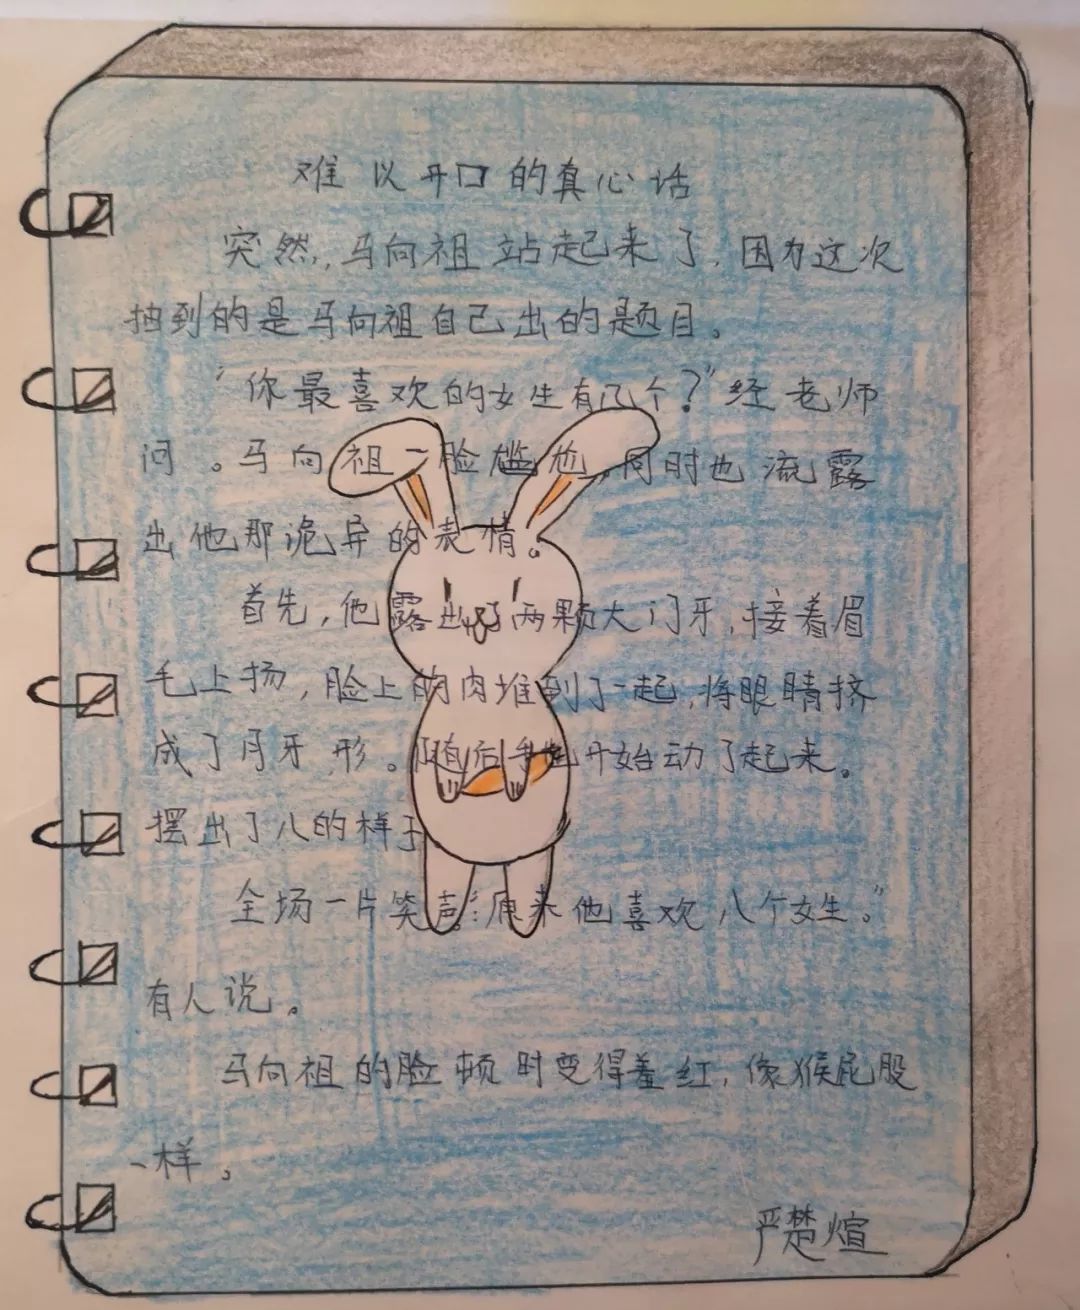 难以开口的真心话
突然,马向祖站起来了,因为这次
抽到的是马向祖自己出的题目。
“你最喜欢的女生有几个?”经老师
问。马向祖一脸尴尬,同时也流露
出他那诡异的表情。
首先,他露出了两颗大门牙,接着眉
毛上扬,脸上的肉堆到了一起,将眼睛挤
成了月牙形。随后手也开始动了起来。
摆出了八的样子
全场一片笑声“原来他喜欢八个女生。”
有人说。
马向祖的脸顿时变得羞红,像猴屁股
一样。
严楚煊